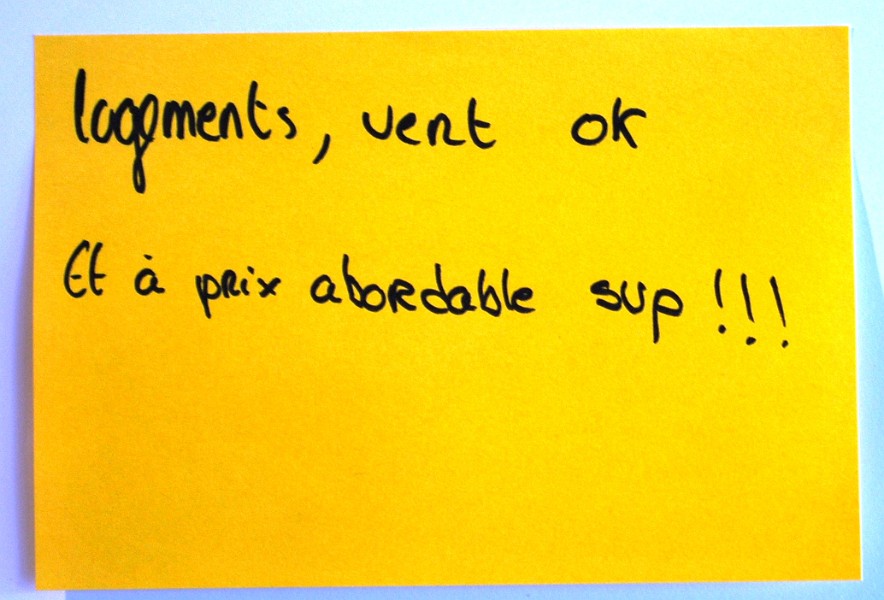 logments, vert ok
Et à prix abordable sup !!!